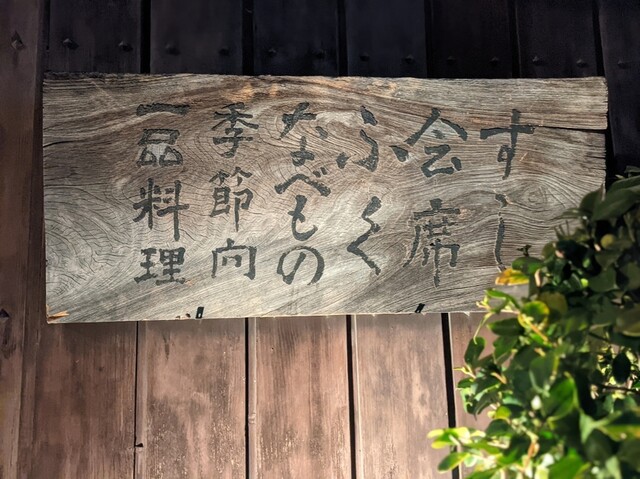 すし
会席
ふく
なべもの
季節向
一品料理